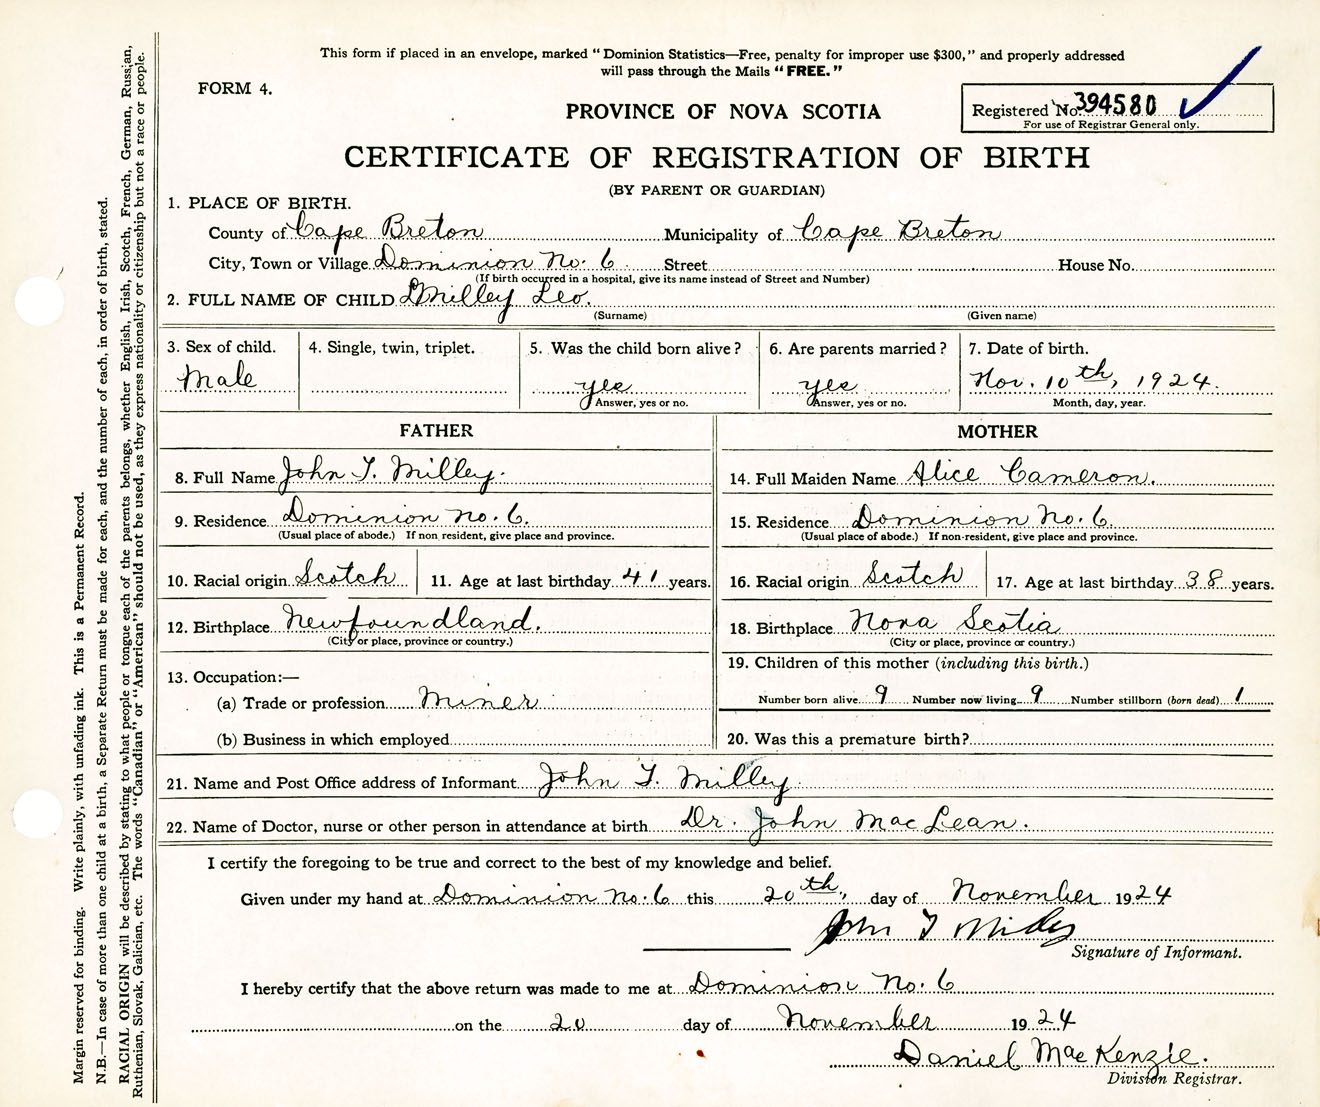 This form if placed in an envelope, marked "Dominion Statistics—Free, penalty for improper use $300," and properly addressed
will pass through the Mails "FREE."
FORM 4.
PROVINCE OF NOVA SCOTIA
Registered No. 394580
For use of Registrar General only.
CERTIFICATE OF REGISTRATION OF BIRTH
(BY PARENT OR GUARDIAN)
1. PLACE OF BIRTH.
County of Cape Breton Municipality of Cape Breton
City, Town or Village Dominion No. 6 Street House No.
(If birth occurred in a hospital, give its name instead of Street and Number)
2. FULL NAME OF CHILD Milley Leo.
(Surname) (Given name)
3. Sex of child. 4. Single, twin, triplet. 5. Was the child born alive? 6. Are parents married? 7. Date of birth.
Male yes yes Nov. 10th, 1924.
Answer, yes or no. Answer, yes or no. Month, day, year.
FATHER MOTHER
8. Full Name John T. Milley. 14. Full Maiden Name Alice Cameron.
9. Residence Dominion No. 6. 15. Residence Dominion No. 6.
(Usual place of abode.) If non resident, give place and province. (Usual place of abode.) If non-resident, give place and province.
10. Racial origin Scotch 11. Age at last birthday 41 years. 16. Racial origin Scotch 17. Age at last birthday 38 years.
12. Birthplace Newfoundland. 18. Birthplace Nova Scotia
(City or place, province or country.) (City or place, province or country.)
13. Occupation:— 19. Children of this mother (including this birth.)
(a) Trade or profession Miner Number born alive 9 Number now living 9 Number stillborn (born dead) 1
(b) Business in which employed 20. Was this a premature birth?
21. Name and Post Office address of Informant John T. Milley
22. Name of Doctor, nurse or other person in attendance at birth Dr. John MacLean.
I certify the foregoing to be true and correct to the best of my knowledge and belief.
Given under my hand at Dominion No. 6 this 20th, day of November 1924
John T Milley
Signature of Informant.
I hereby certify that the above return was made to me at Dominion No. 6
on the 20 day of November 1924
Daniel MacKenzie.
Division Registrar.
Margin reserved for binding. Write plainly, with unfading ink. This is a Permanent Record.
N.B.—In case of more than one child at a birth, a Separate Return must be made for each, and the number of each, in order of birth, stated.
RACIAL ORIGIN will be described by stating to what people or tongue each of the parents belongs, whether English, Irish, Scotch, French, German, Russian,
Ruthenian, Slovak, Galician, etc. The words "Canadian" or "American" should not be used, as they express nationality or citizenship but not a race or people.